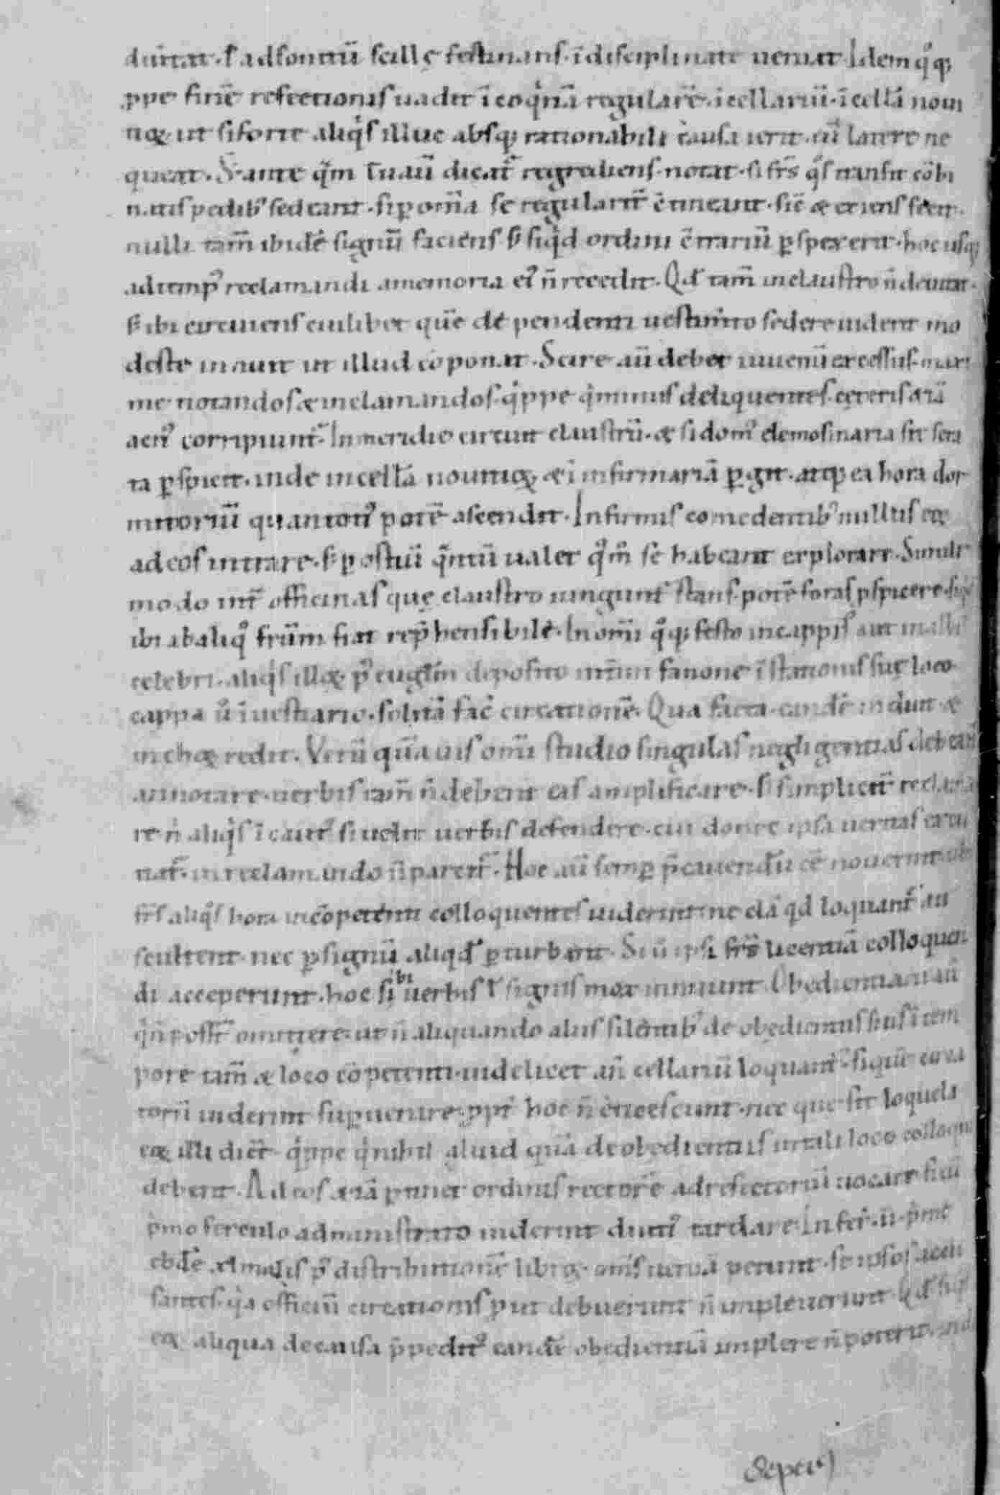 dunt at · ł ad sonitū scillę festinans · īdisciplinate veniat · Idem q̊q̨
ꝓpe finē refectionis vadit ī coq̇nā regularē · ī cellariū · ī cellā novi
tioꝝ ut si forte aliq̇s illuc absq̨ rationabili causa ierit · eū latere ne
queat ·
nulli tam̄ ibidē signū faciens · s; siq̇d ordini c̄trariū ꝑspexerit · hoc usq̨
ad temp᾽ reclamandi a memoria ei᾽ n̄ recedit · Qđ tam̄ in claustro n̄
s; ibi circuiens cuilibet quē depententi vestimto sedere viderit mo
deste innuit ut illud cōponat · Scire aū debet iuvenū excessus
me notandos ⁊ inclamandos · q̇ppe q̇ minus deliquentes cęteris ⁊iā
acri᾽ corripiunt᷑ · In meridie circuit claustrū · ⁊ si dom᾽ elemosinaria sit sera
ta ꝑspicit · inde in cellā novitioꝝ ⁊ ī infirmariā ꝑgit · atq̨ ea hora dor
mitoriū quantoti᾽ potē ascendit · Infirmis comedentib᾽ nullus eoꝝ
ad eos intrare · s; ꝑ ostiū q̄ntū valet q̊m̄ se habeant explorare · Simili
modo int̄ officinas quę claustro iungunt᷑ stans · potē foras ꝑspicere · siq̇d
ibi ab aliq̊ frūm fiat rep̄hensibilē · In om̄i q̊q̨ festo in cappis aut in albis
celebri · aliq̇s illoꝝ p᾽ euglm̄ deposito intim fanone ī stationis suę loco
cappa ū ī vestiario · solitā fac̄ circationē · Qua facta · eandē induit ⁊
in choꝝ redit · Verū quāvis om̄i studio singulas negligentias debeant
annotare · verbis tam̄ n̄ debent eas amplificare · s; simplicit᷑ reclama
re n̄ aliq̇s īcaut᾽ si velit verbis defendere · cui donec ipsa veritas
in reclamando n̄ parcet᷑ · Hoc aū semꝑ p̄cavendū eē noverint
frs̄ aliq̇s hora incōpetenti colloquentes viderint · ne clā q̇d loquant᷑ au
scultent · nec ꝑ signū aliqđ ꝑturbent · Si ū ipsi frs̄ licentiā colloquen
di acceperunt · hoc sibi verbis ł signis mox innuunt · Obedientiarii aū
omittere · ut n̄ aliquando aliis silentib᾽ de obedientiis suis ī tem
pore tam̄ ⁊ loco cōpetenti · videlicet an̄ cellariū loquant᷑ · siquē circa
torū viderint suꝑvenire · ꝓpt᷑ hoc n̄ c̄ticescunt · nec que sit loquela
eoꝝ illi dicet᷑ · q̇ppe q̇ nihil aliud quā de obedientiis in tali loco colloqui
debent · Ad eos ⁊iā ꝑtinet ordinis rectorē ad refectoriū vocare si eū
ṗmo ferculo administrato viderint diuti᾽ tardare ·
⁊ malis p᾽ distributionē libroꝝ · om̄s veniā petunt · se ipsos accu
santes · q̇a officiū circationis ꝓut debuerunt n̄ impleverunt · Qđ siq̇s
eoꝝ aliqua de causa p̄pedit᾽ eandē obedientiā implere n̄ poterit